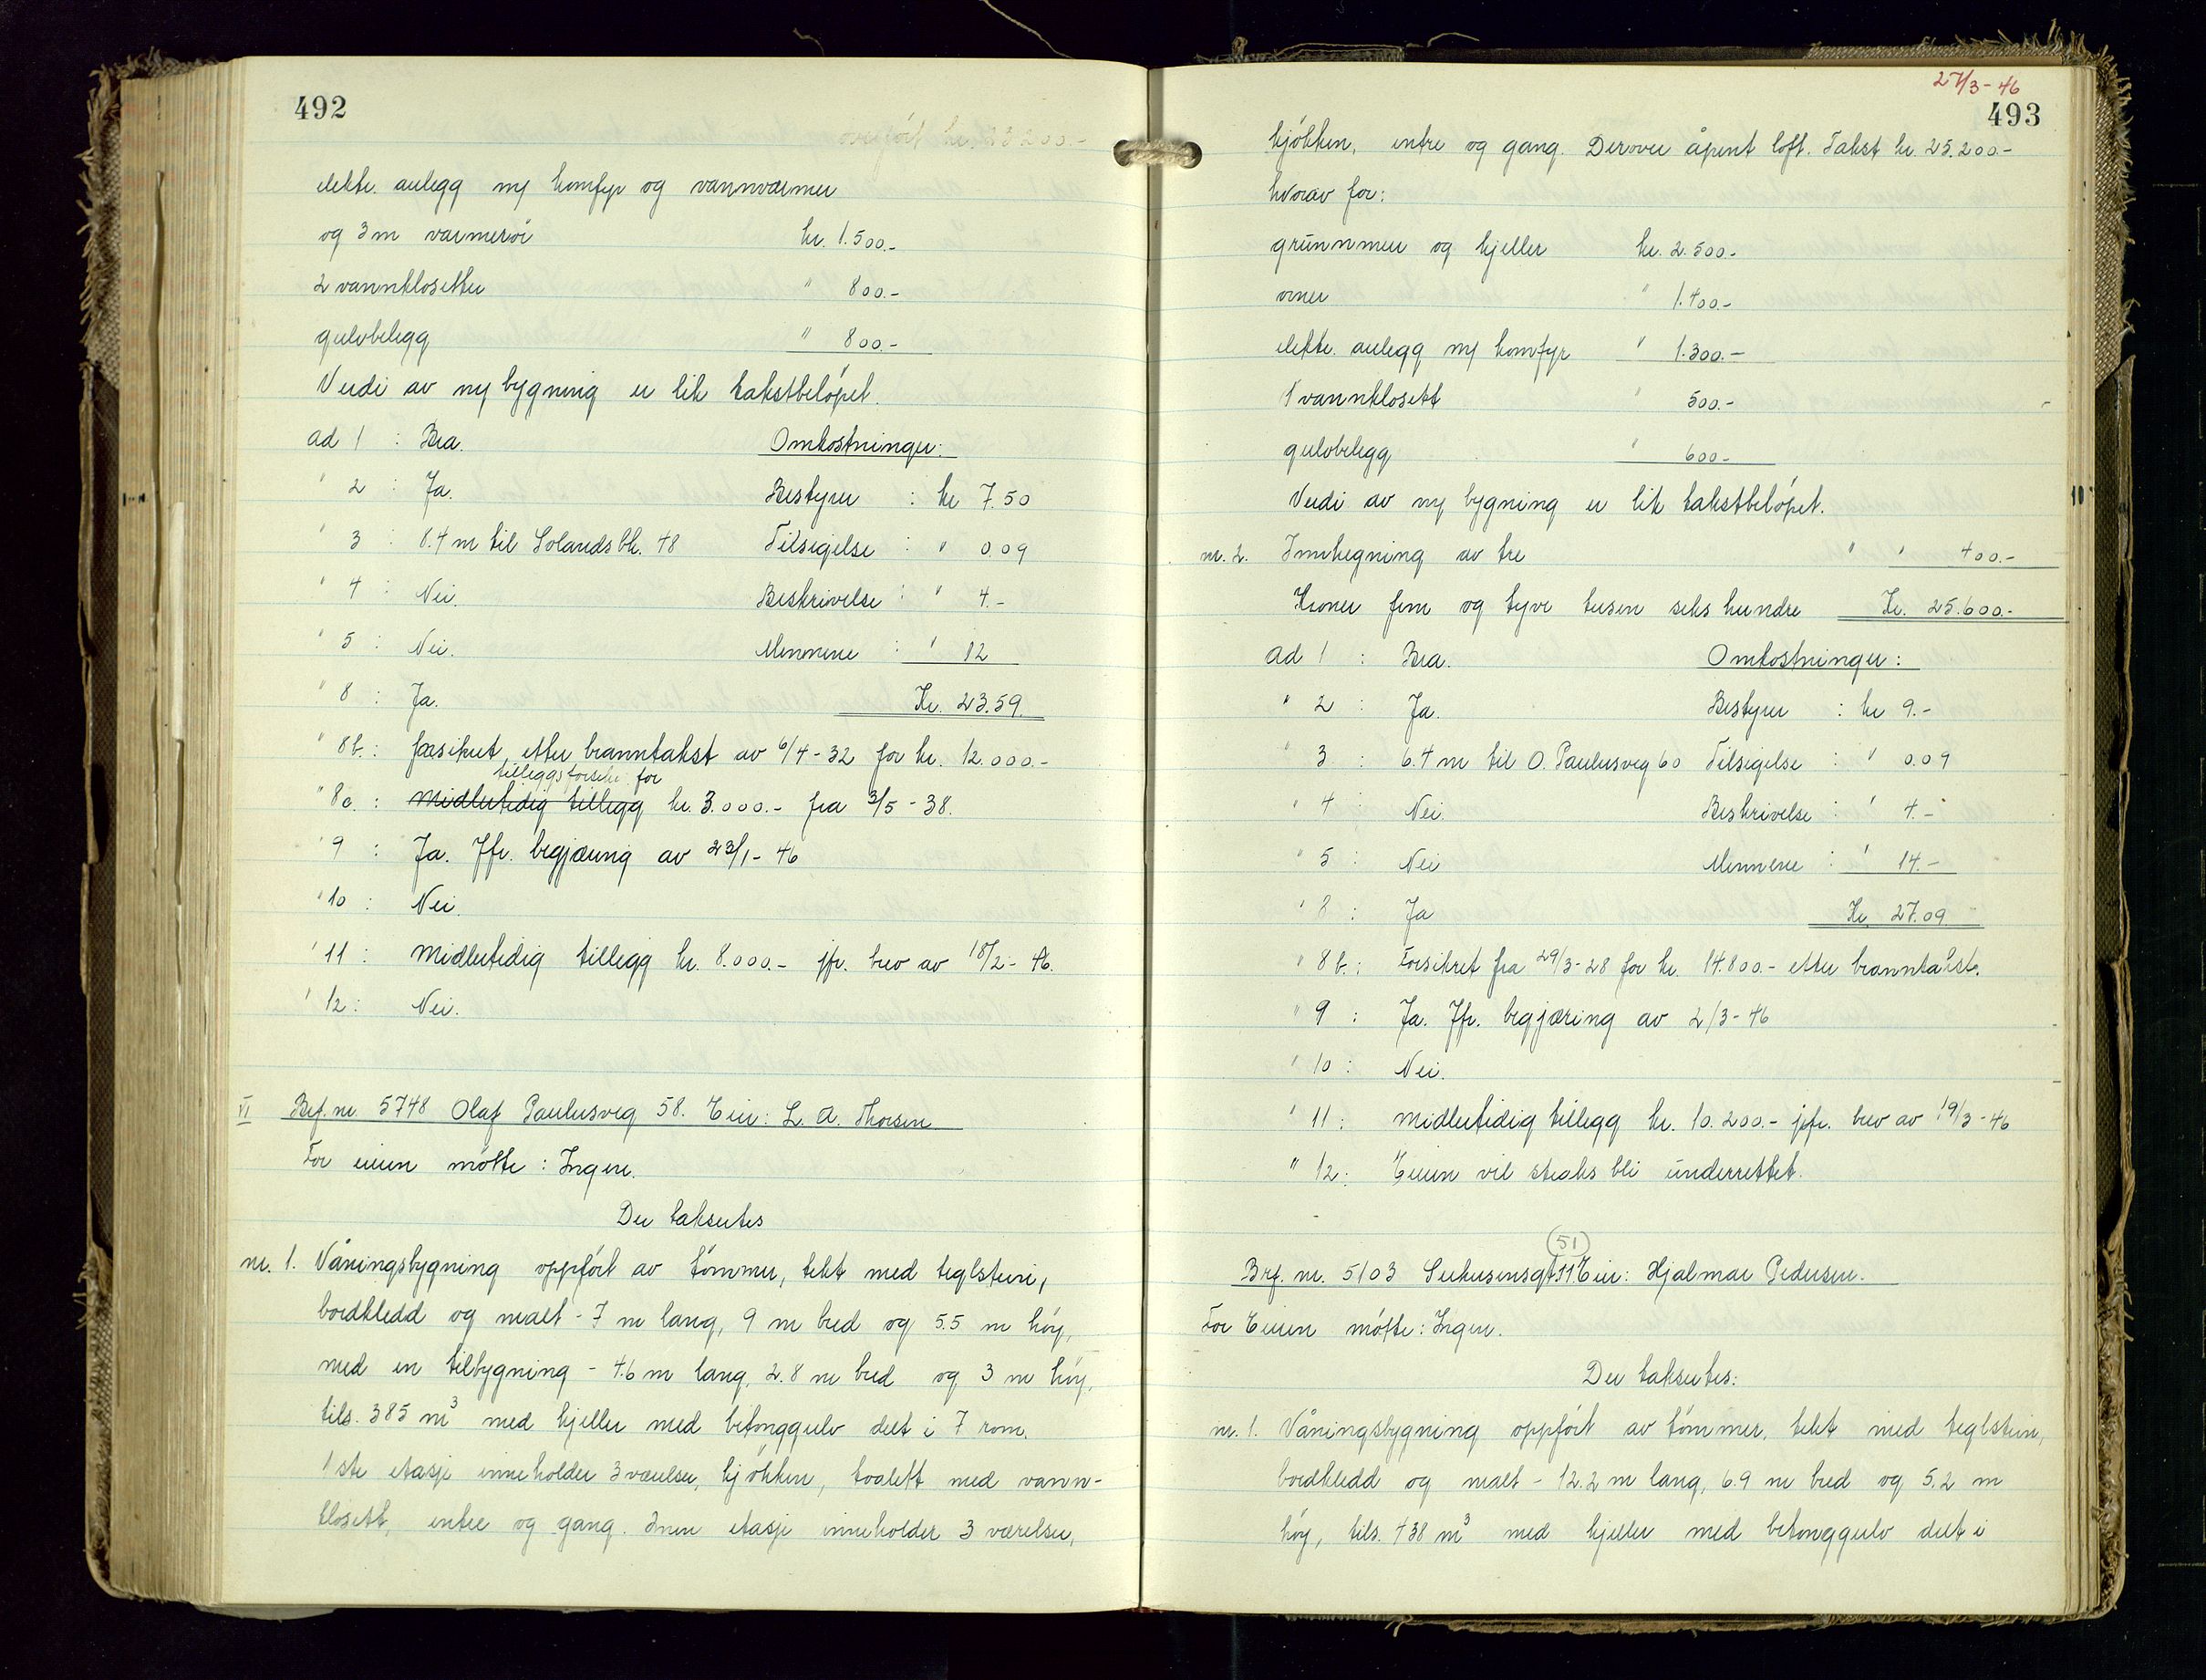 492
overført kr. 23200.-
elektr. anlegg m/ komfyr og vannvarmer
og 3 m varmerør kr. 1.500.-
2 vannklosetter " 800.-
gulvbelegg " 800.-
Verdi av ny bygning er lik takstbeløpet.
ad 1 : Bra. Omkostninger:
" 2 : Ja. Bestyrer : kr 7.50
" 3 : 8.4 m til Solandsbk. 48 Tilsigelse : " 0.09
" 4 : Nei. Beskrivelse : " 4.-
" 5 : Nei. Mennene : " 12
" 8 : Ja. Kr. 23.59
" 8b. : forsikret etter branntakst av 6/4-32 for kr. 12.000.-
tilleggsforsikr. for
" 8c. : midlertidig tillegg kr. 3.000.- fra 3/5-38.
" 9 : Ja. Jfr. begjæring av 23/1-46
" 10 : Nei.
" 11 : midlertidig tillegg kr. 8.000.- jfr. brev av 18/2-46.
" 12 : Nei.
VI Brf. nr. 5748 Olaf Paulusveg 58. Eier: L. A. Thorsen
For eieren møtte : Ingen.
Der takseres
nr. 1. Våningsbygning oppført av tømmer, tekt med teglstein,
bordkledd og malt - 7 m lang, 9 m bred og 5.5 m høy,
med en tilbygning - 4.6 m lang, 2.8 m bred og 3 m høy,
tils. 385 m³ med kjeller med betonggulv delt i 7 rom.
1ste etasje inneholder 3 værelser, kjøkken, toalett med vann-
klosett, entre og gang. 2nen etasje inneholder 3 værelser,
27/3-46
493
kjøkken, entre og gang. Derover åpent loft. Takst kr. 25.200.-
hvorav for:
grunnmur og kjeller kr. 2.500.-
ovner " 1.400.-
elektr. anlegg m/ komfyr " 1.300.-
1 vannklosett " 500.-
gulvbelegg " 600.-
Verdi av ny bygning er lik takstbeløpet.
nr. 2. Innhegning av tre " " 400.-
Kroner fem og tyve tusen seks hundre Kr. 25.600.-
ad 1 : Bra. Omkostninger:
" 2 : Ja. Bestyrer : kr 9.-
" 3 : 6.4 m til O. Paulusveg 60 Tilsigelse : " 0.09
" 4 : Nei. Beskrivelse : " 4.-
" 5 : Nei Mennene : " 14.-
" 8 : Ja Kr. 27.09
" 8b. : Forsikret fra 29/3-28 for kr. 14.800.- etter branntakst.
" 9 : Ja. Jfr. begjæring av 2/3-46
" 10 : Nei.
" 11 : midlertidig tillegg kr. 10.200.- jfr. brev av 19/3-46
" 12 : Eieren vil straks bli underrettet.
(51)
Brf. nr. 5103 Eier: Hjalmar Pedersen.
For Eieren møtte : Ingen.
Der takseres:
nr. 1. Våningsbygning oppført av tømmer, tekt med teglstein,
bordkledd og malt - 12.2 m lang, 6.9 m bred og 5.2 m
høy, tils. 438 m³ med kjeller med betonggulv delt i